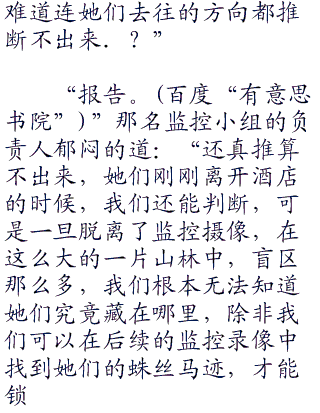 难道连她们去往的方向都推
断不出来．？”
“报告。(百度“有意思
书院”)”那名监控小组的负
责人郁闷的道：“还真推算
不出来，她们刚刚离开酒店
的时候，我们还能判断，可
是一旦脱离了监控摄像，在
这么大的一片山林中，盲区
那么多，我们根本无法知道
她们究竟藏在哪里，除非我
们可以在后续的监控录像中
找到她们的蛛丝马迹，才能
锁